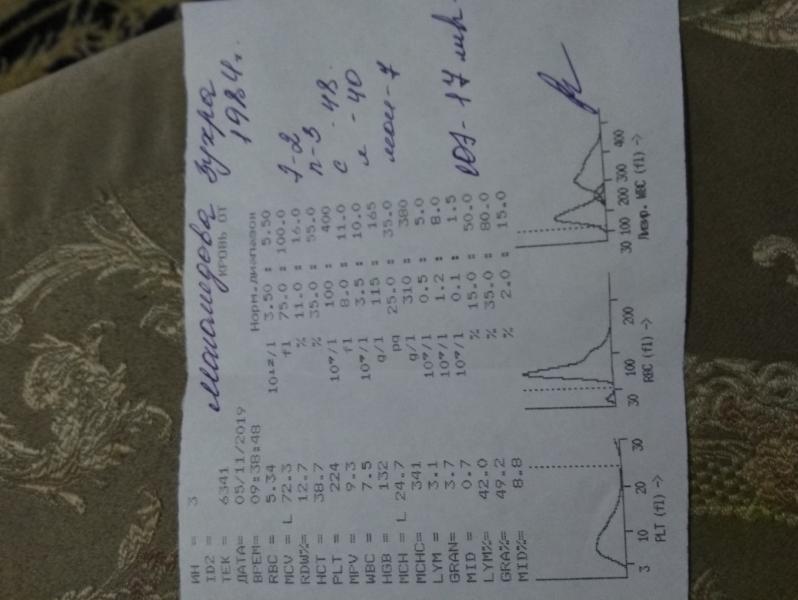 Магомедова Зухра
1984г.
ИН = 3
ID2 =
ТЕК = 6341 КРОВЬ ОТ
ДАТА= 05/11/2019
ВРЕМ= 09:38:48 Норм.диапазон
RBC = 5.34 10¹²/l 3.50 : 5.50
MCV = L 72.3 fl 75.0 : 100.0
RDW%= 12.7 % 11.0 : 16.0
HCT = 38.7 % 35.0 : 55.0
PLT = 224 10⁹/l 100 : 400
MPV = 9.3 fl 8.0 : 11.0
WBC = 7.5 10⁹/l 3.5 : 10.0
HGB = 132 g/l 115 : 165
MCH = L 24.7 pg 25.0 : 35.0
MCHC= 341 g/l 310 : 380
LYM = 3.1 10⁹/l 0.5 : 5.0
GRAN= 3.7 10⁹/l 1.2 : 8.0
MID = 0.7 10⁹/l 0.1 : 1.5
LYM%= 42.0 % 15.0 : 50.0
GRA%= 49.2 % 35.0 : 80.0
MID%= 8.8 % 2.0 : 15.0
п-3
с 48
л - 40
мон-7
СОЭ-17 мм
3 10 20 30
PLT (fl) ->
30 100 200
RBC (fl) ->
30 100 200 300 400
Лизир. WBC (fl) ->